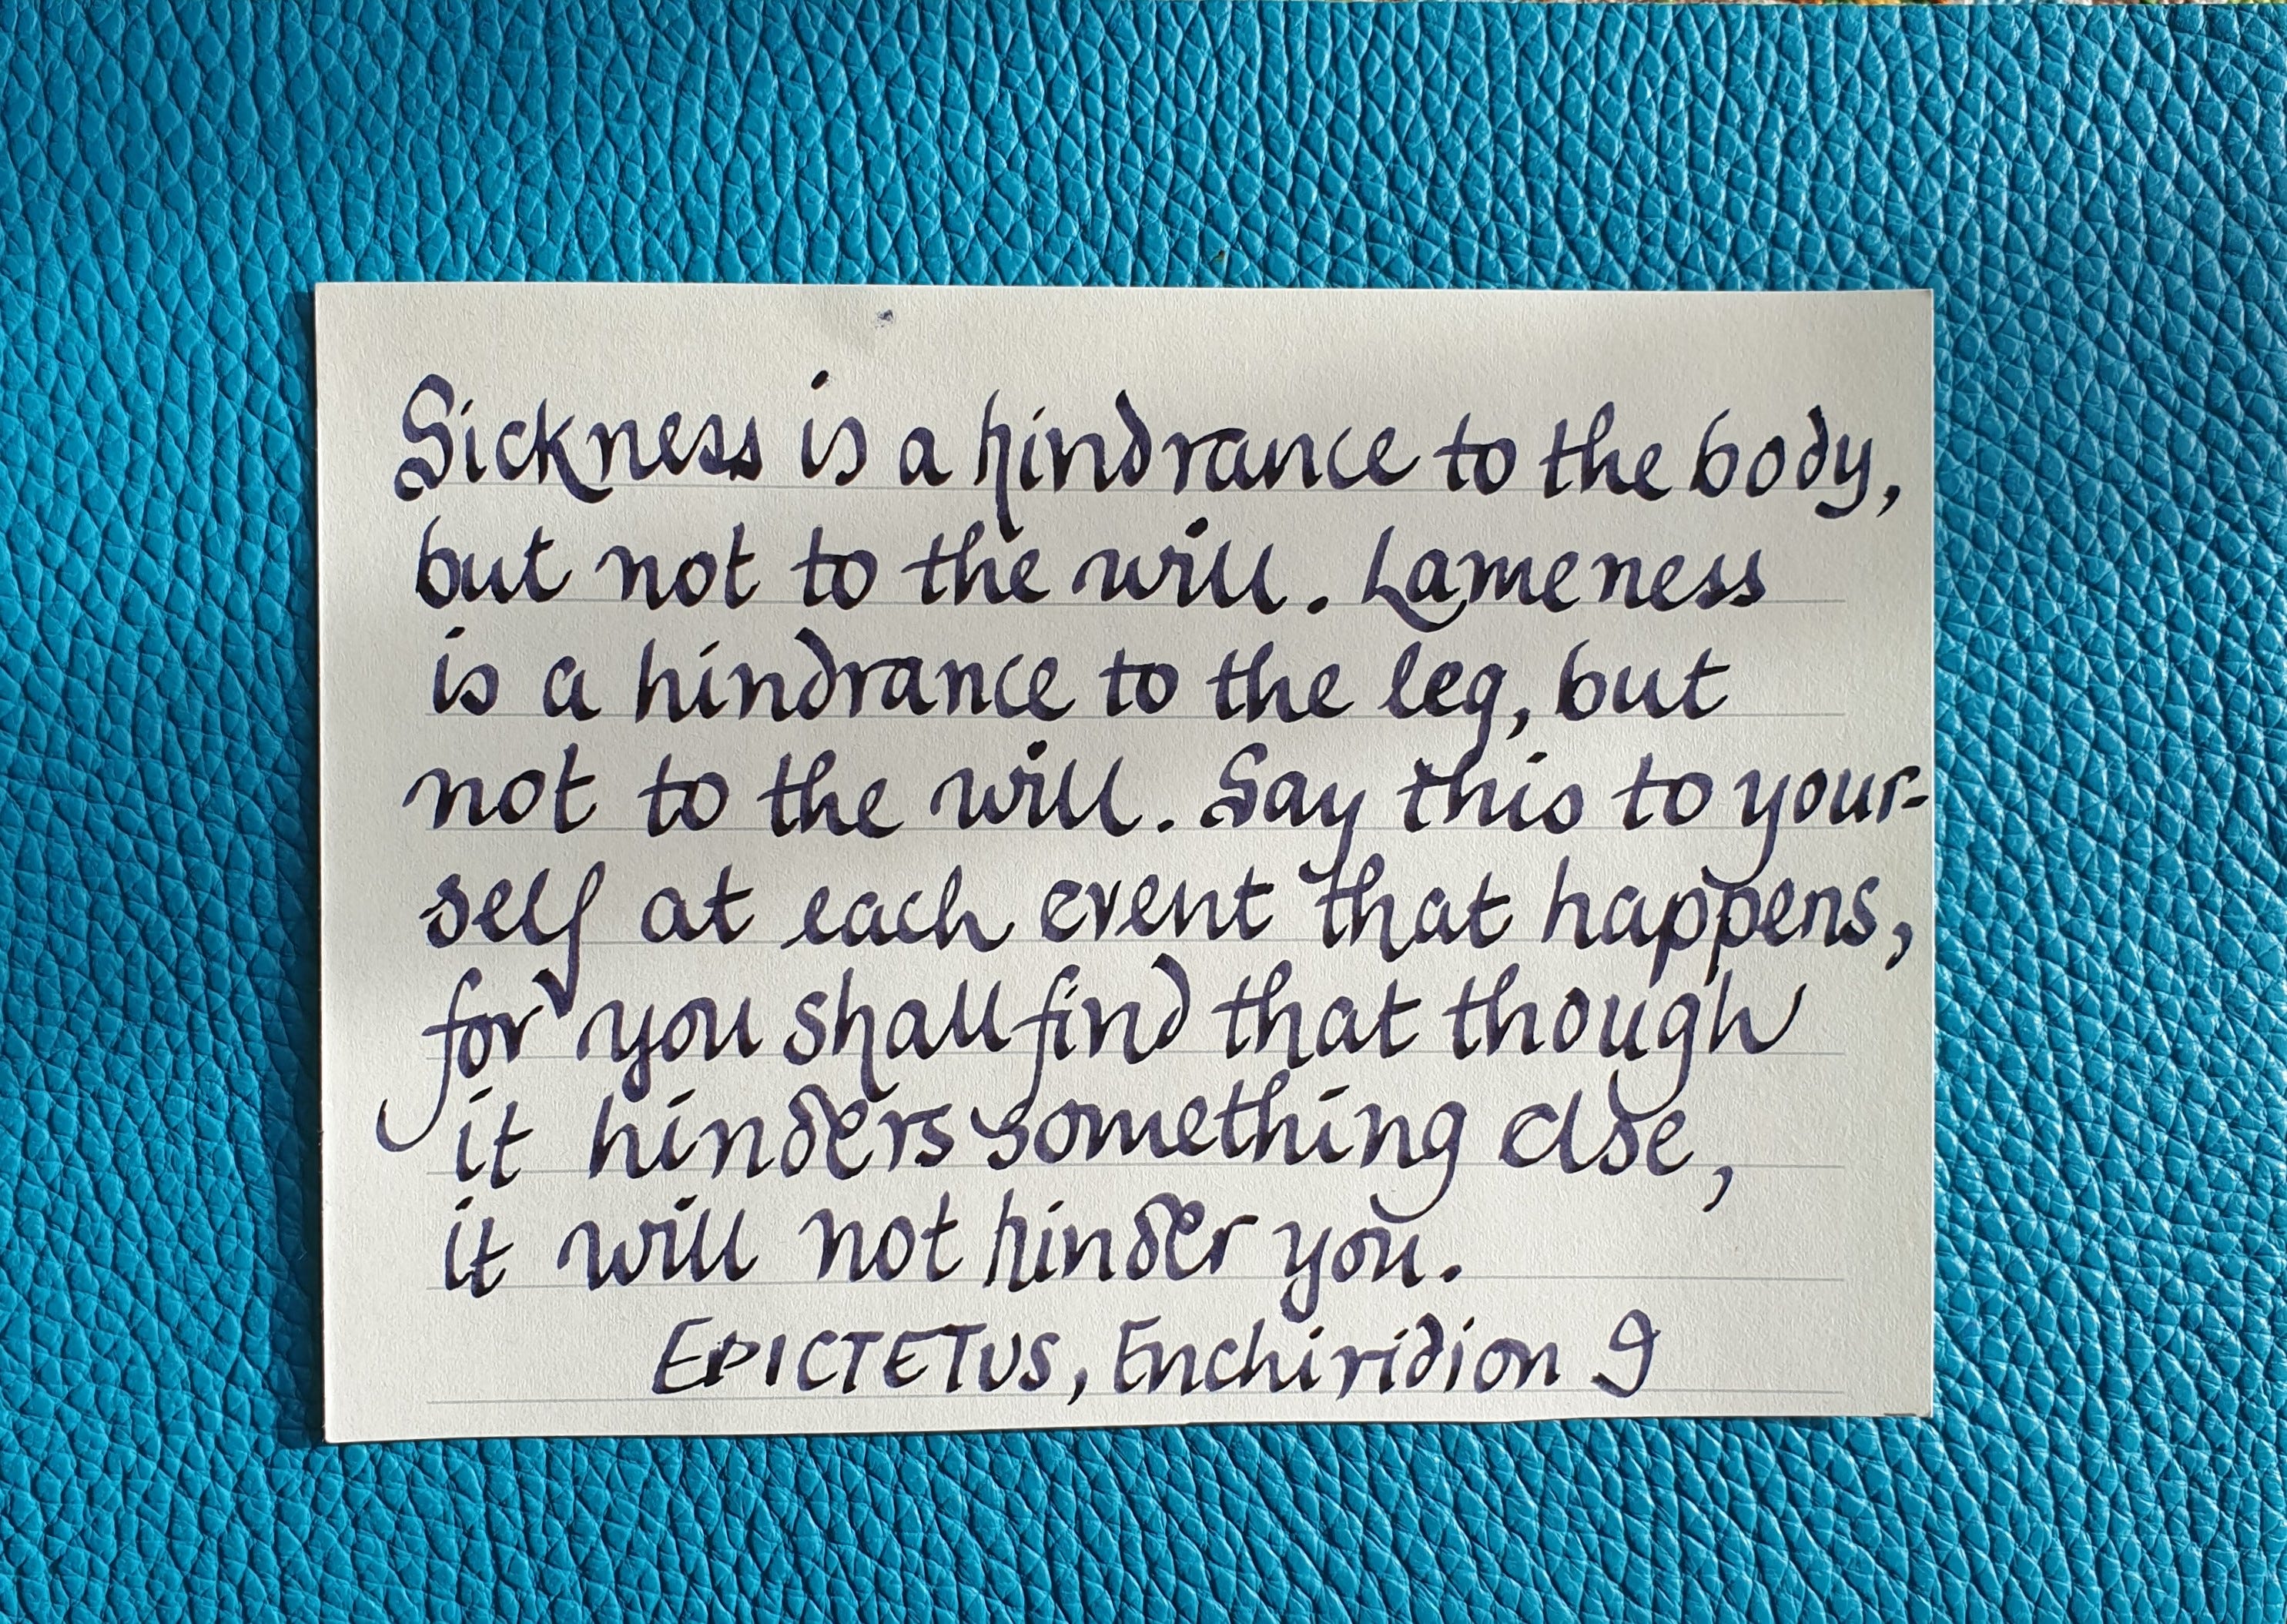 Sickness is a hindrance to the body,
but not to the will. Lameness
is a hindrance to the leg, but
not to the will. Say this to your-
self at each event that happens,
for you shall find that though
it hinders something else,
it will not hinder you.
EPICTETUS, Enchiridion 9